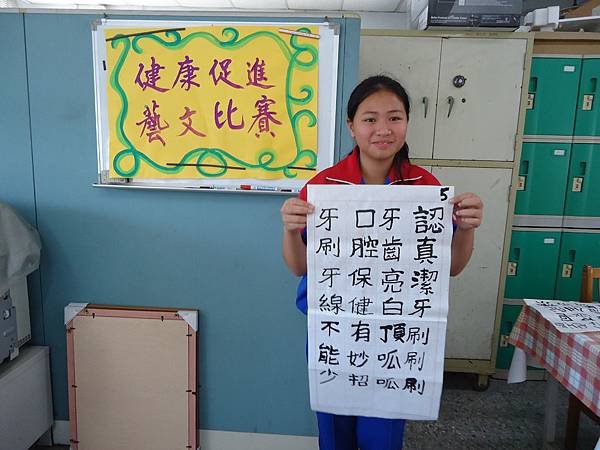 健康促進
藝文比賽
5
認真潔牙刷刷刷
牙齒亮白頂呱呱
口腔保健有妙招
牙刷牙線不能少